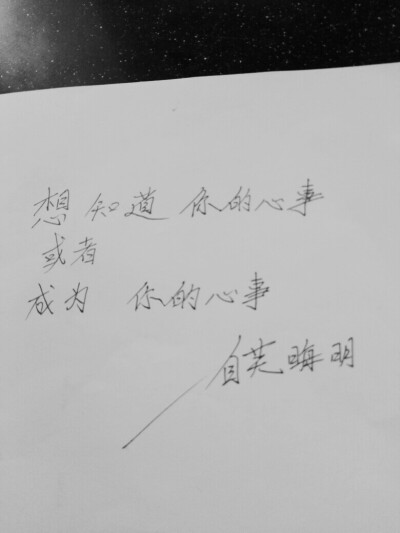 想知道 你的心事
或者
成为 你的心事
自芜晦明